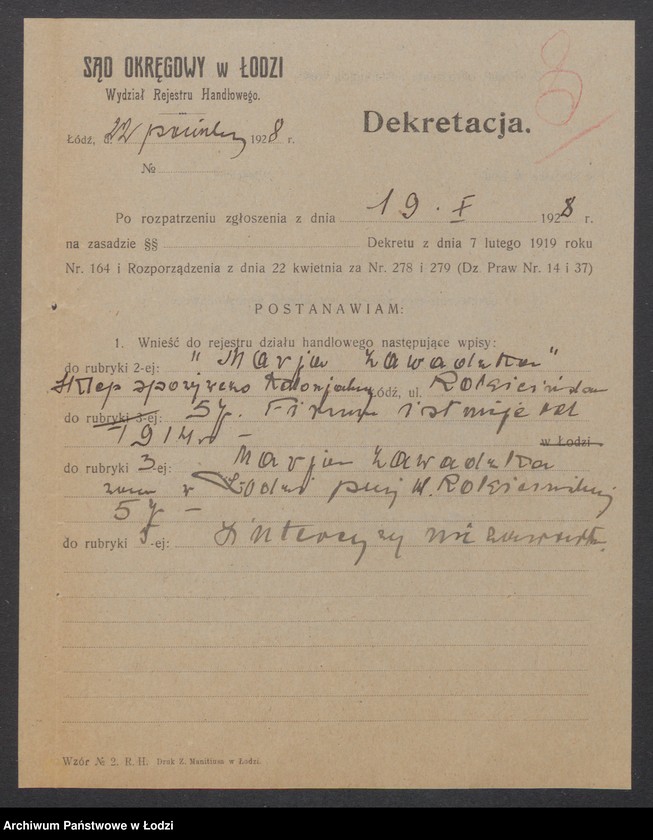 SĄD OKRĘGOWY w ŁODZI
Wydział Rejestru Handlowego.
Dekretacja.
Łódź, d. 22 październ 1928 r.
№
Po rozpatrzeniu zgłoszenia z dnia 19. X 1928 r.
na zasadzie §§ Dekretu z dnia 7 lutego 1919 roku
Nr. 164 i Rozporządzenia z dnia 22 kwietnia za Nr. 278 i 279 (Dz. Praw Nr. 14 i 37)
POSTANAWIAM:
1. Wnieść do rejestru działu handlowego następujące wpisy:
do rubryki 2-ej: "Marja Zawadzka"
Sklep spożywczo kolonjalny Łódź, ul. Rokicińska
do rubryki 3-ej: 57. Firma istnieje od
1914 r –
w Łodzi
do rubryki 3-ej: Marja Zawadzka
zam w Łodzi przy ul. Rokicińskiej
57 –
do rubryki 5-ej: Intercyzy nie zawarła.
Wzór № 2. R. H. Druk Z. Manitius w Łodzi.
Archiwum Państwowe w Łodzi